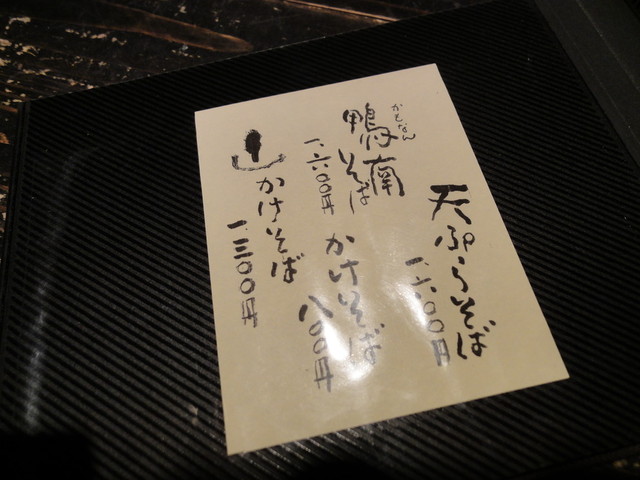 天ぷらそば
一六〇〇円
かもなん
鴨南
そば
一、六〇〇円
かけそば
八〇〇円
かけそば
一三〇〇円